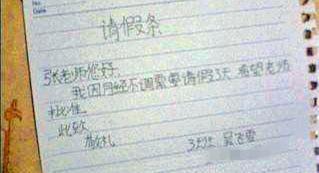 No.
Date
请假条
张老师您好
我因月经不调需要请假3天 希望老师
批准
此致
敬礼